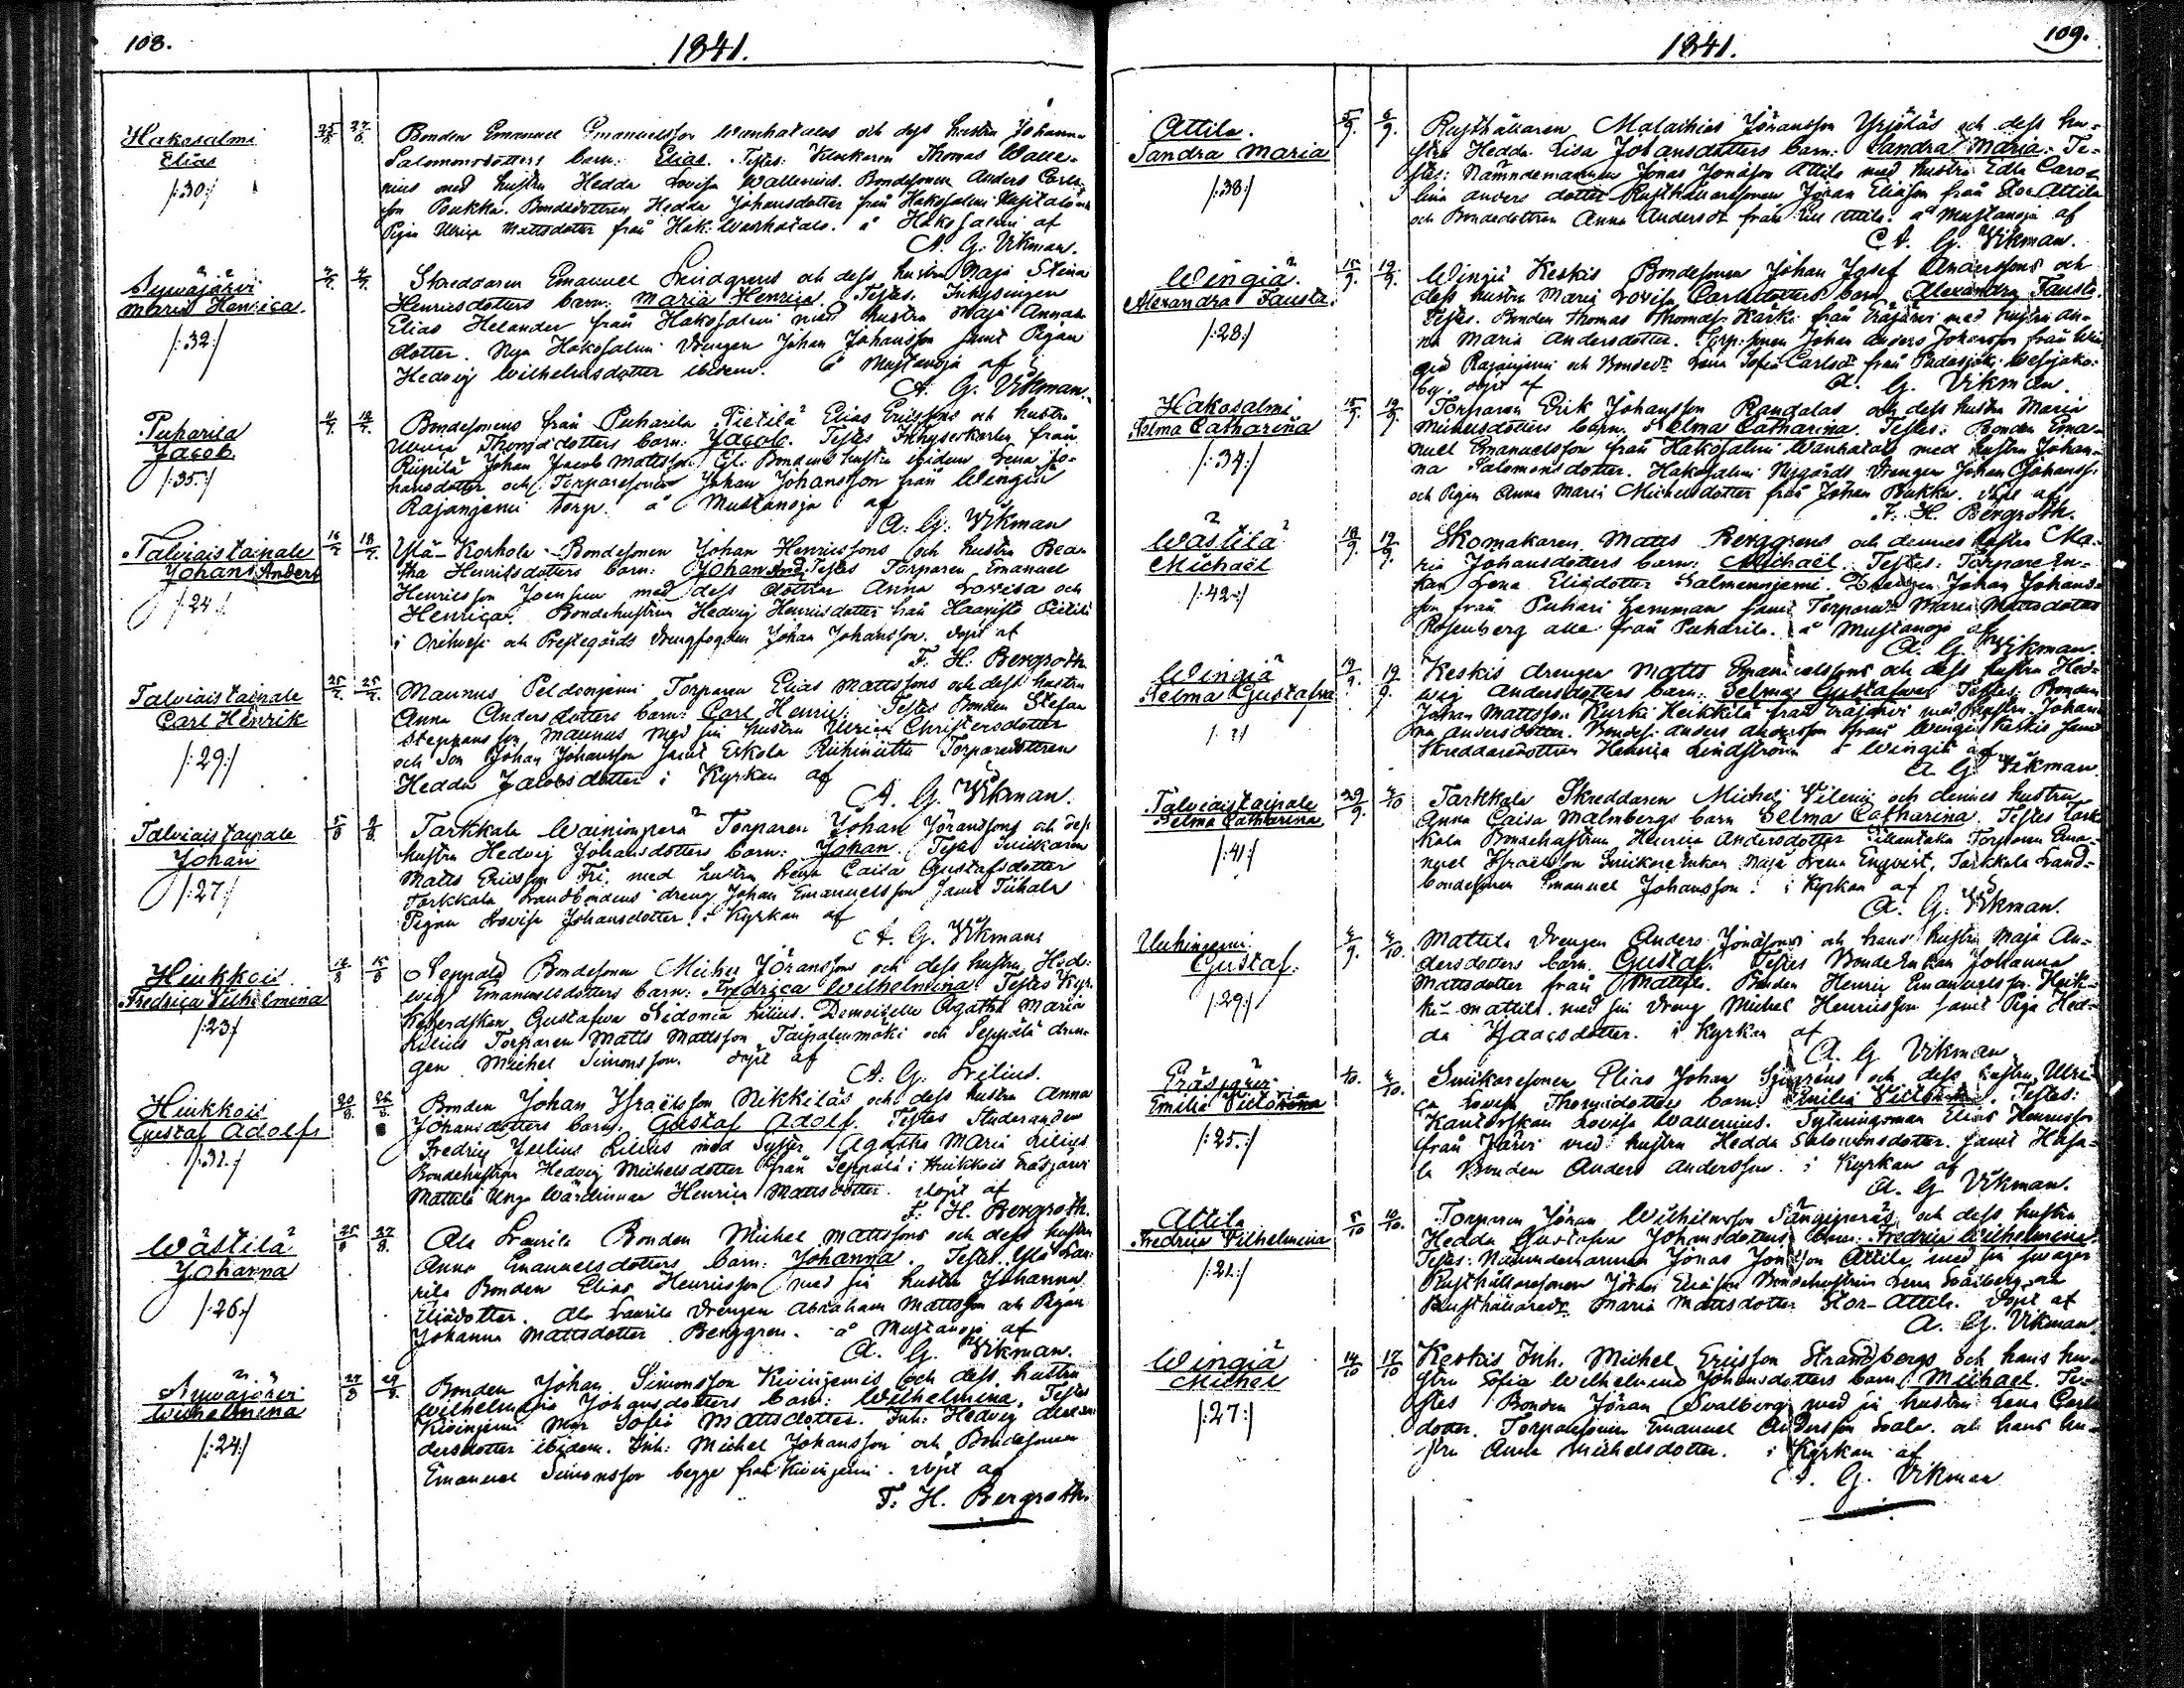 108.
1841.
Hakosalmi
Elias
/:30:/
25/6 27/6
Bonden Emanuel Emanuelsson Wanhatalos och dess hustru Johanna
Salomonsdotters barn: Elias. Testes: Klockaren Thomas Walle-
nius med hustru Hedda Lovisa Wallenius. Bondesonen Anders Carls-
son Pukka. Bondedottren Hedda Johansdotter från Hakosalmi
Pigan Ulrica Mattsdotter från Hak: Wanhatalo. å Hakosalmi af
A. G. Wikman.
Syväjärvi
Maria Henrica.
/:32:/
Skreddaren Emanuel Lindgrens och dess hustru Maja Stina
Henricsdotters barn: Maria Henrica. Testes. Inhysingen
Elias Helander från Hakosalmi med hustru Maja Annas
dotter. Nya Hakosalmi Drengen Johan Johansson samt Pigan
Hedvig Wilhelmsdotter ibidem. å Mustanoja af
A. G. Wikman.
Puharila
Jacob
/:35:/
Bondesonens från Puharila Pietilä Elias Ericssons och hustru
Ulrica Thomasdotters barn: Jacob. Testes Inhysekarlen från
Riipilä Johan Jacob Mattsson. Bondens hustru ibidem Lena Jo-
hansdotter och Torparesonen Johan Johansson från Wingiä
Rajaniemi torp. å Mustanoja af
A. G. Wikman
Talviaistaipale
Johan Anders
/:24:/
16/7 18/7
Ylä-Korhola Bondesonen Johan Henricssons och hustru Bea-
tha Henriksdotters barn: Johan And: Testes Torparen Emanuel
Henricsson Joensuu med dess dottrar Anna Lovisa och
Henrica. Bondehustrun Hedvig Henricsdotter från Haavisto
i Orihvesi och Prestegårds Drengfogden Johan Johansson. döpt af
F. H. Bergroth
Talviaistaipale
Carl Henrik
/:29:/
25/7 25/7
Maunus Peldoniemi Torparen Elias Mattssons och dess hustru
Anna Andersdotters barn: Carl Henric. Testes Bonden Stefan
Steffansson Maunus med sin hustru Ulrica Christersdotter
och Son Johan Johansson samt Eskola Torparedottren
Hedda Jacobsdotter i Kyrkan af
A. G. Wikman.
Talviaistaipale
Johan
/:27:/
5/8 8/8
Tarkkala Wainionperä Torparen Johan Joranssons och dess
hustru Hedvig Johansdotters barn: Johan. Testes Snickaren
Matts Ericsson Fri med hustru Caisa Gustafsdotter
Tarkkala Landbondens dreng Johan Emanuelsson samt
Pigan Lovisa Johansdotter. i Kyrkan af
A. G. Wikman
Hiukkois
Fredrica Vilhelmina
/:23:/
Seppälä Bondesonen Michel Joranssons och dess hustru Hed-
wig Emanuelsdotters barn: Fredrica Wilhelmina. Testes Kyr-
koherdskan Gustafva Sidonia Lilius. Demoiselle Agatha Maria
Lilius Torparen Matts Mattsson Taipalenmäki och Seppälä dren-
gen Michel Simonsson. döpt af
A. G. Lilius.
Hiukkois
Gustaf Adolf
/:32:/
20/8 22/8
Bonden Johan Israelsson Nikkiläs och dess hustru Anna
Johansdotters barn: Gustaf Adolf. Testes Studeranden
Fredric Julius Lilius med Syster Agatha Maria Lilius
Bondehustrun Hedvig Michelsdotter från Seppälä i Hiukkois
Mattila Unga Wärdinnan Henrica Mattsdotter. döpt af
F. H. Bergroth.
Wästilä
Johanna
/:26:/
25/8 27/8
Ala Laurila Bonden Michel Mattssons och dess hustru
Anna Emanuelsdotters barn: Johanna. Testes Ylö Lau-
rila Bonden Elias Henricsson med sin hustru Johanna
Eliædotter. Ala Laurila Drengen Abraham Mattsson och Pigan
Johanna Mattsdotter Berggren. å Mustanoja af
A. G. Wikman.
Syväjärvi
Wilhelmina
/:24:/
27/8 29/8
Bonden Johan Simonsson Kivinjemis och dess hustru
Wilhelmina Johansdotters barn: Wilhelmina. Testes
Kivinjemi Mor Sofia Mattsdotter. Inh: Hedvig Alexan-
dersdotter ibidem. Inh: Michel Johansson och Bondesonen
Emanuel Simonsson begge från Kivinjemi. döpt af
F. H. Bergroth.
1841.
109.
Attila.
Sandra Maria
/:38:/
Rusthållaren Malachias Joransson Yrjöläs och dess hu-
stru Hedda Lisa Johansdotters barn: Sandra Maria. Te-
stes: Nämndemannen Jonas Jonasson Attila med hustru Edla Caro-
lina Anders dotter Rusthållaresonen Joran Eliasson från Attila
och Bondedottren Anna Andersdr från Attila. å Mustanoja af
A. G. Wikman.
Wingiä
Alexandra Fausta.
/:28:/
15/9 19/9
Wingiä Keskis Bondesonen Johan Josef Anderssons och
dess hustru Maria Lovisa Carlsdotters barn: Alexandra Fausta.
Testes. Bonden Thomas Thomass: Karki från Eräjärvi med hustru An-
na Maria Andersdotter. Torp: sonen Johan Anders Johansson från Win-
giä Rajaniemi och Bondedr Lena Sofia Carlsdr från Padasjoki Wesijako-
by. döpt af A. G. Wikman.
Hakosalmi
Selma Catharina
/:34:/
15/9 19/9
Torparen Erik Johansson Randalas och dess hustru Maria
Michelsdotters barn: Selma Catharina. Testes: Bonden Ema-
nuel Emanuelsson från Hakosalmi Wanhatalo med hustru Johan-
na Salomonsdotter. Hakosalmi Nygårds Drengen Johan Johanss:
och Pigan Anna Maria Michelsdotter från Johan Pukka. döpt af
F. H. Bergroth.
Wästilä
Michaël
/:42:/
18/9 19/9
Skomakaren Matts Berggrens och dennes hustru Ma-
ria Johansdotters barn: Michaël. Testes: Torpare En-
kan Lena Eliædotter Salmenniemi. Drengen Johan Johans-
son från Puhari Lamman samt Torparedr Maria Mattsdotter
Rosenberg alla från Puharila. å Mustanoja af
A. G. Wikman.
Wingiä
Selma Gustafva
/: ?:/
Keskis drengen Matts Emanuelssons och dess hustru Hed-
wig Andersdotters barn: Selma Gustafva. Testes: Bonden
Johan Mattsson Kurki Heikkilä från Eräjärvi med hustru Johan-
na Andersdotter. Bondes: Anders Andersson från Wingiä Keskis samt
Skreddaredottren Henrica Lindström å Wingiä af
A. G. Wikman.
Talviaistaipale
Selma Catharina
/:41:/
29/9 4/10
Tarkkala Skreddaren Michel Vilenii och dennes hustru
Anna Caisa Malmbergs barn Selma Catharina. Testes Tark-
kala Bondehustrun Henrica Andersdotter Torparen Ema-
nuel Israelsson Snickare Enkan Maja Lena Engvert, Tarkkala Land-
bondesonen Emanuel Johansson. i Kyrkan af
A. G. Wikman.
Uuhiniemi
Gustaf.
/:29:/
Mattila Drengen Anders Jonassons och hans hustru Maja An-
dersdotters barn. Gustaf. Testes Bonde Enkan Johanna
Mattsdotter från Mattila. Bonden Henric Emanuelsson Heik-
ki-Mattila med sin Dreng Michel Henricsson samt Piga Hed-
da Isaacsdotter. i Kyrkan af
A. G. Wikman
Emilia Victorina
/:25:/
Snickaresonen Elias Johan och dess hustru Ulri-
ca Lovisa Thomasdotters barn: Emilia Victorina. Testes:
Kantorskan Lovisa Wallenius. Sytningsman Elias Henricsson
från Järvi med hustru Hedda Salomonsdotter. samt
Bonden Anders Andersson. i Kyrkan af
A. G. Wikman.
Attila
Fredrica Vilhelmina
5/10 10/10
Torparen Joran Wilhelmsson och dess hustru
Hedda Gustafva Johansdotters barn: Fredrica Wilhelmina.
Testes: Nämndemannen Jonas Jonasson Attila med sin swåger
Rusthållaresonen Joran Eliasson Bondehustrun Lena
Rusthållaredr Maria Mattsdotter Stor-Attila. Döpt af
A. G. Wikman.
Wingiä
Michel
/:27:/
14/10 17/10
Keskis Inh. Michel Ericsson Strandbergs och hans hu-
stru Sofia Wilhelmina Johansdotters barn: Michael. Te-
stes Bonden Joran Svalberg med sin hustru Lena Carls
dotter. Torparesonen Emanuel Andersson och hans hu-
stru Anna Michelsdotter. i Kyrkan af
A. G. Wikman